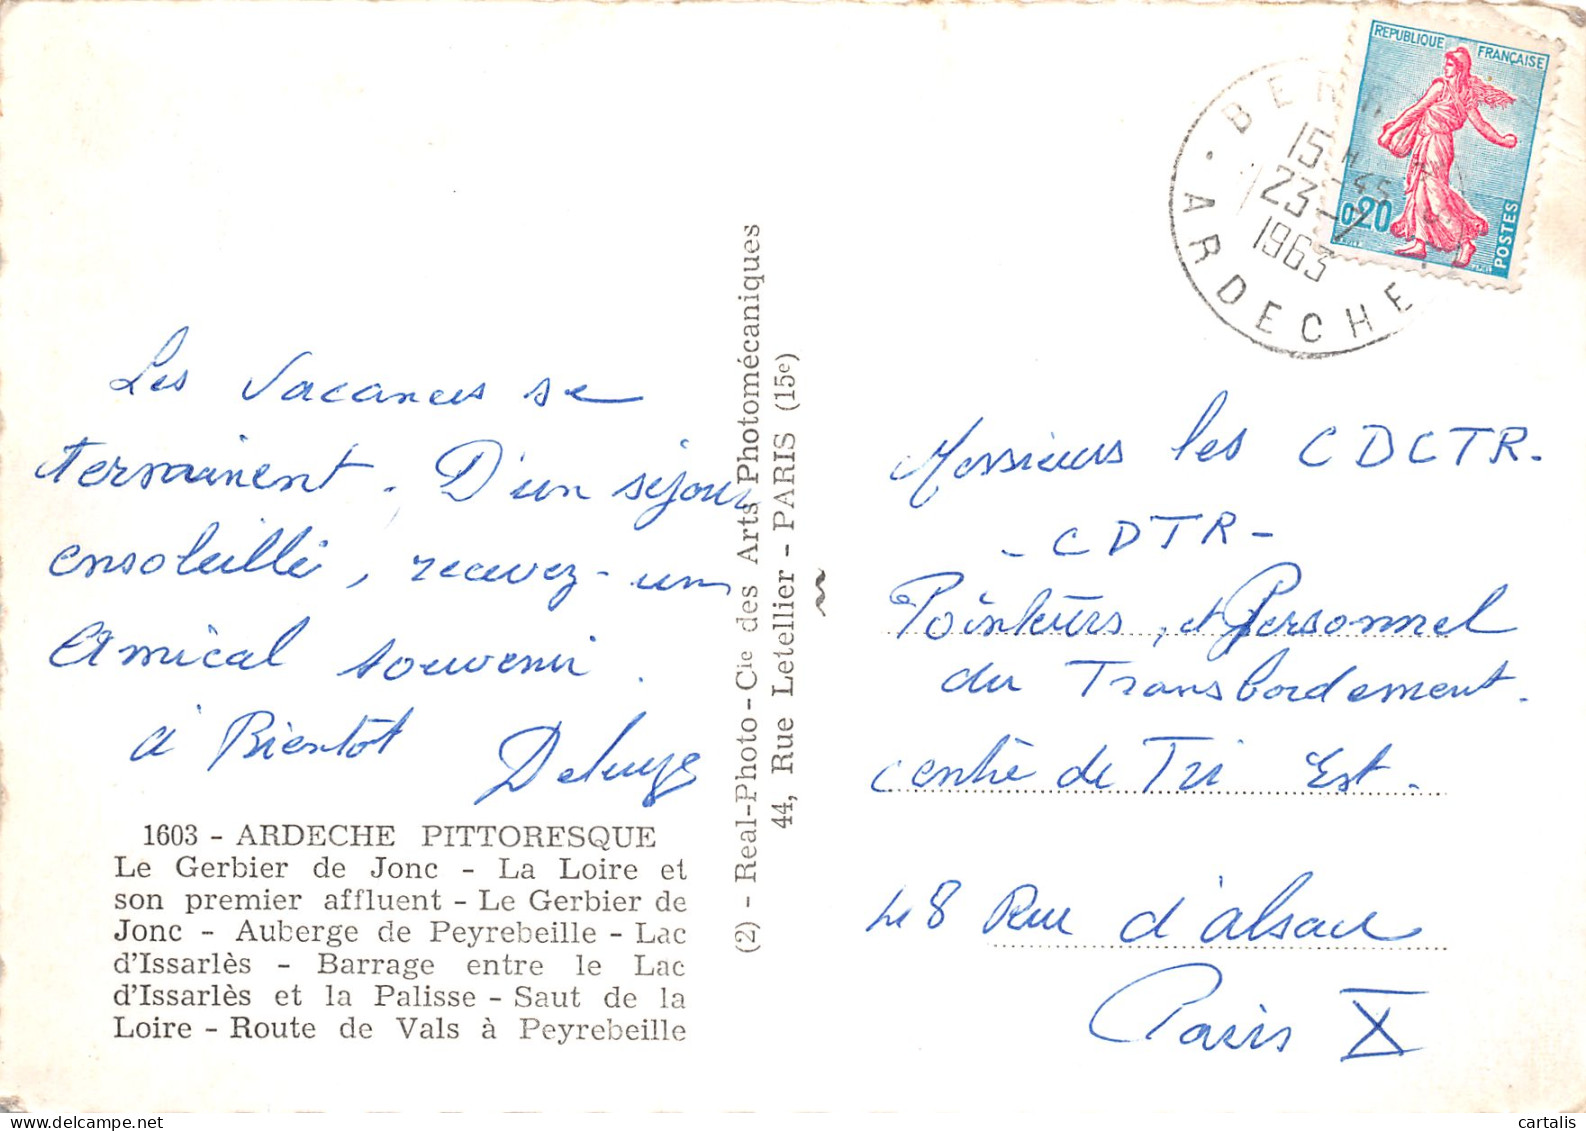 Les Vacances se
terminent. D'un séjour
ensoleillé, recevez-un
Amical souvenir.
à Bientôt
1603 - ARDECHE PITTORESQUE
Le Gerbier de Jonc - La Loire et
son premier affluent - Le Gerbier de
Jonc - Auberge de Peyrebeille - Lac
d'Issarlès - Barrage entre le Lac
d'Issarlès et la Palisse - Saut de la
Loire - Route de Vals à Peyrebeille
(2) - Real-Photo - Cie des Arts Photomécaniques
44, Rue Letellier - PARIS (15e)
REPUBLIQUE FRANÇAISE
0,20
POSTES
15 H 45
23-7
1963
ARDECHE
Messieurs les CDCTR.
- CDTR -
Pointeurs, et Personnel
du Transbordement.
centre de Tri Est.
48 Rue d'alsace
Paris X
cartalis